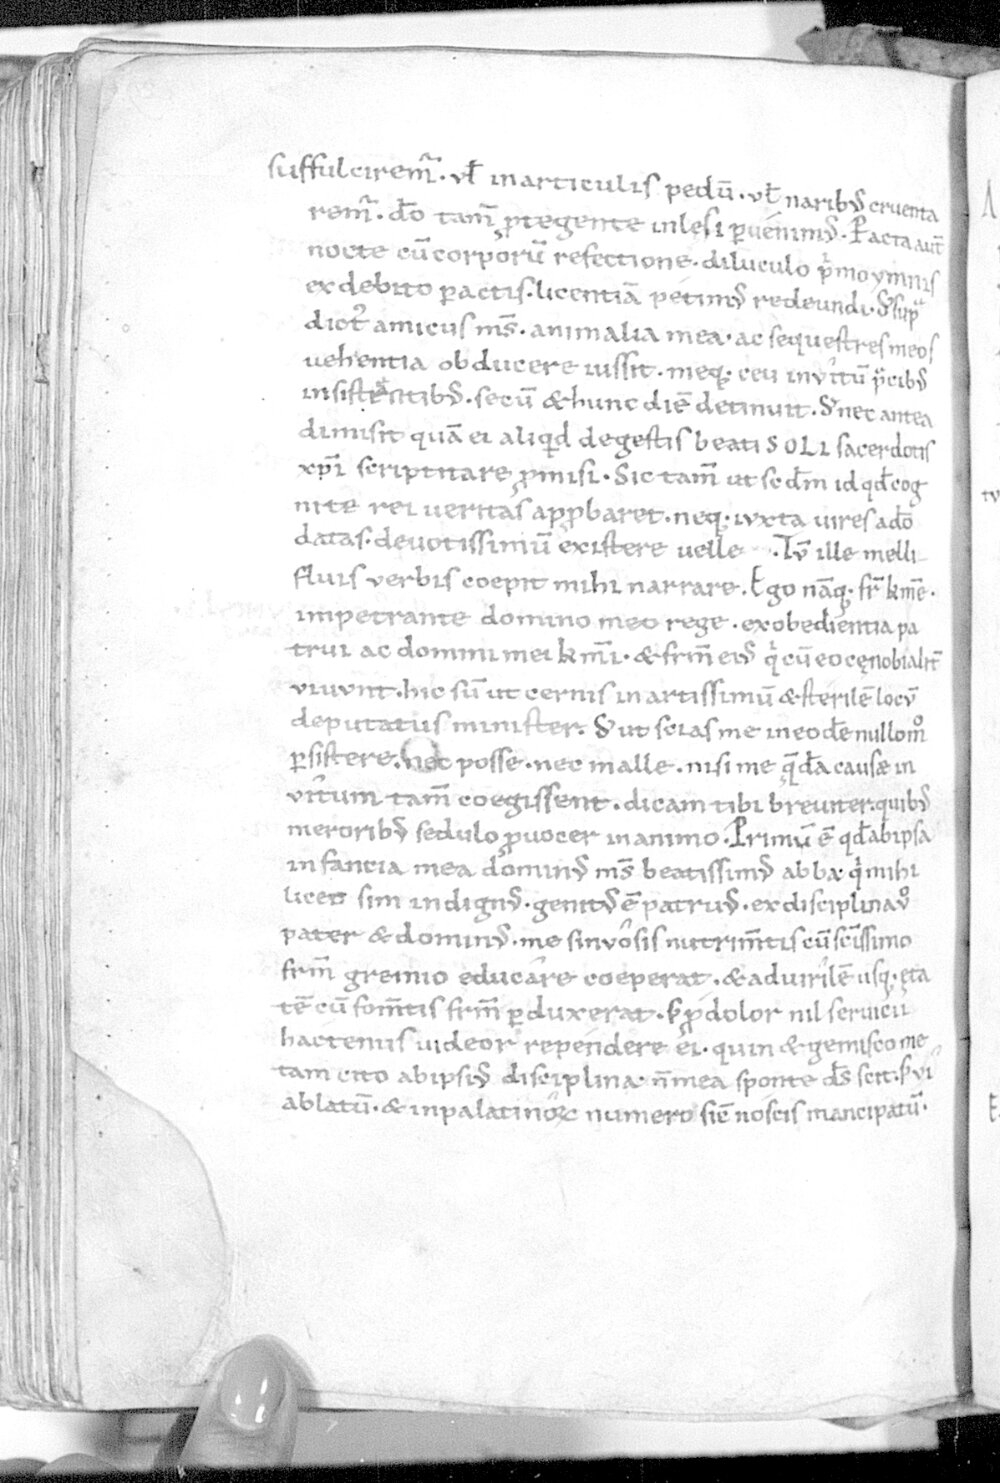 suffulciremur̄. vł in articulis pedū. vł narib; cruenta
rem̄. dō tam̄ ꝓtegente inlesi ꝑvenim;. Facta aut̄
nocte cū corporū refectione. diluculo pͥmo ymnis
ex debito ꝑactis. licentiā petim; redeundi. S; supͣ
dict; amicus ms̄. animalia mea. ac sequestres meos
uehentia obducere iussit. meq; ceu invitū pͥcib;
insistentib;. secū & hunc diē detinuit. S; nec antea
dimisit quā ei aliqͥd de gestis beati SOLI sacerdotis
xp̄i scripturare ꝓmisi. Sic tam̄ ut scd̄m id qd̄ cog
nite rei veritas apꝓbaret. neq; iuxta vires a dō
datas. devotissimū existere velle. Tū ille melli
fluis verbis coepit mihi narrare. Ego nāq; fr̄ km̄e.
impetrante domino meo rege. ex obedientia pa
trui ac domini mei km̄i. & frm̄ ei; qͥ cū eo cęnobialit̄
vivunt. hic sū ut cernis in artissimū & sterilē locū
deputatus minister. S; ut scias me in eodē nullom̊
ꝑsistere. nec posse. nec malle. nisi me qͣdā causæ in
vitum tam̄ coegissent. dicam tibi breviter. quib;
merorib; sedulo ꝓvocer in animo. Primū ē qd̄ ab ipsa
infancia mea domin; ms̄ beatissim; abba. qͥ mihi
licet sim indign;. genit; ē patru;. ex disciplina v̊
pater & domin;. me sinvosis nutrim̄tis cū sc̄issimo
frm̄ gremio educare coeperat. & ad virilē usq; ęta
tē cū fom̄tis frm̄ ꝑduxerat. S; ꝓ dolor nil servicii
hactenus videor rependere ei. quin & gemisco me
tam cito ab ipsi; disciplina n̄ mea sponte ds̄ scit. S; vi
ablatū. & in palatinoꝝ numero sic noscis mancipatū.